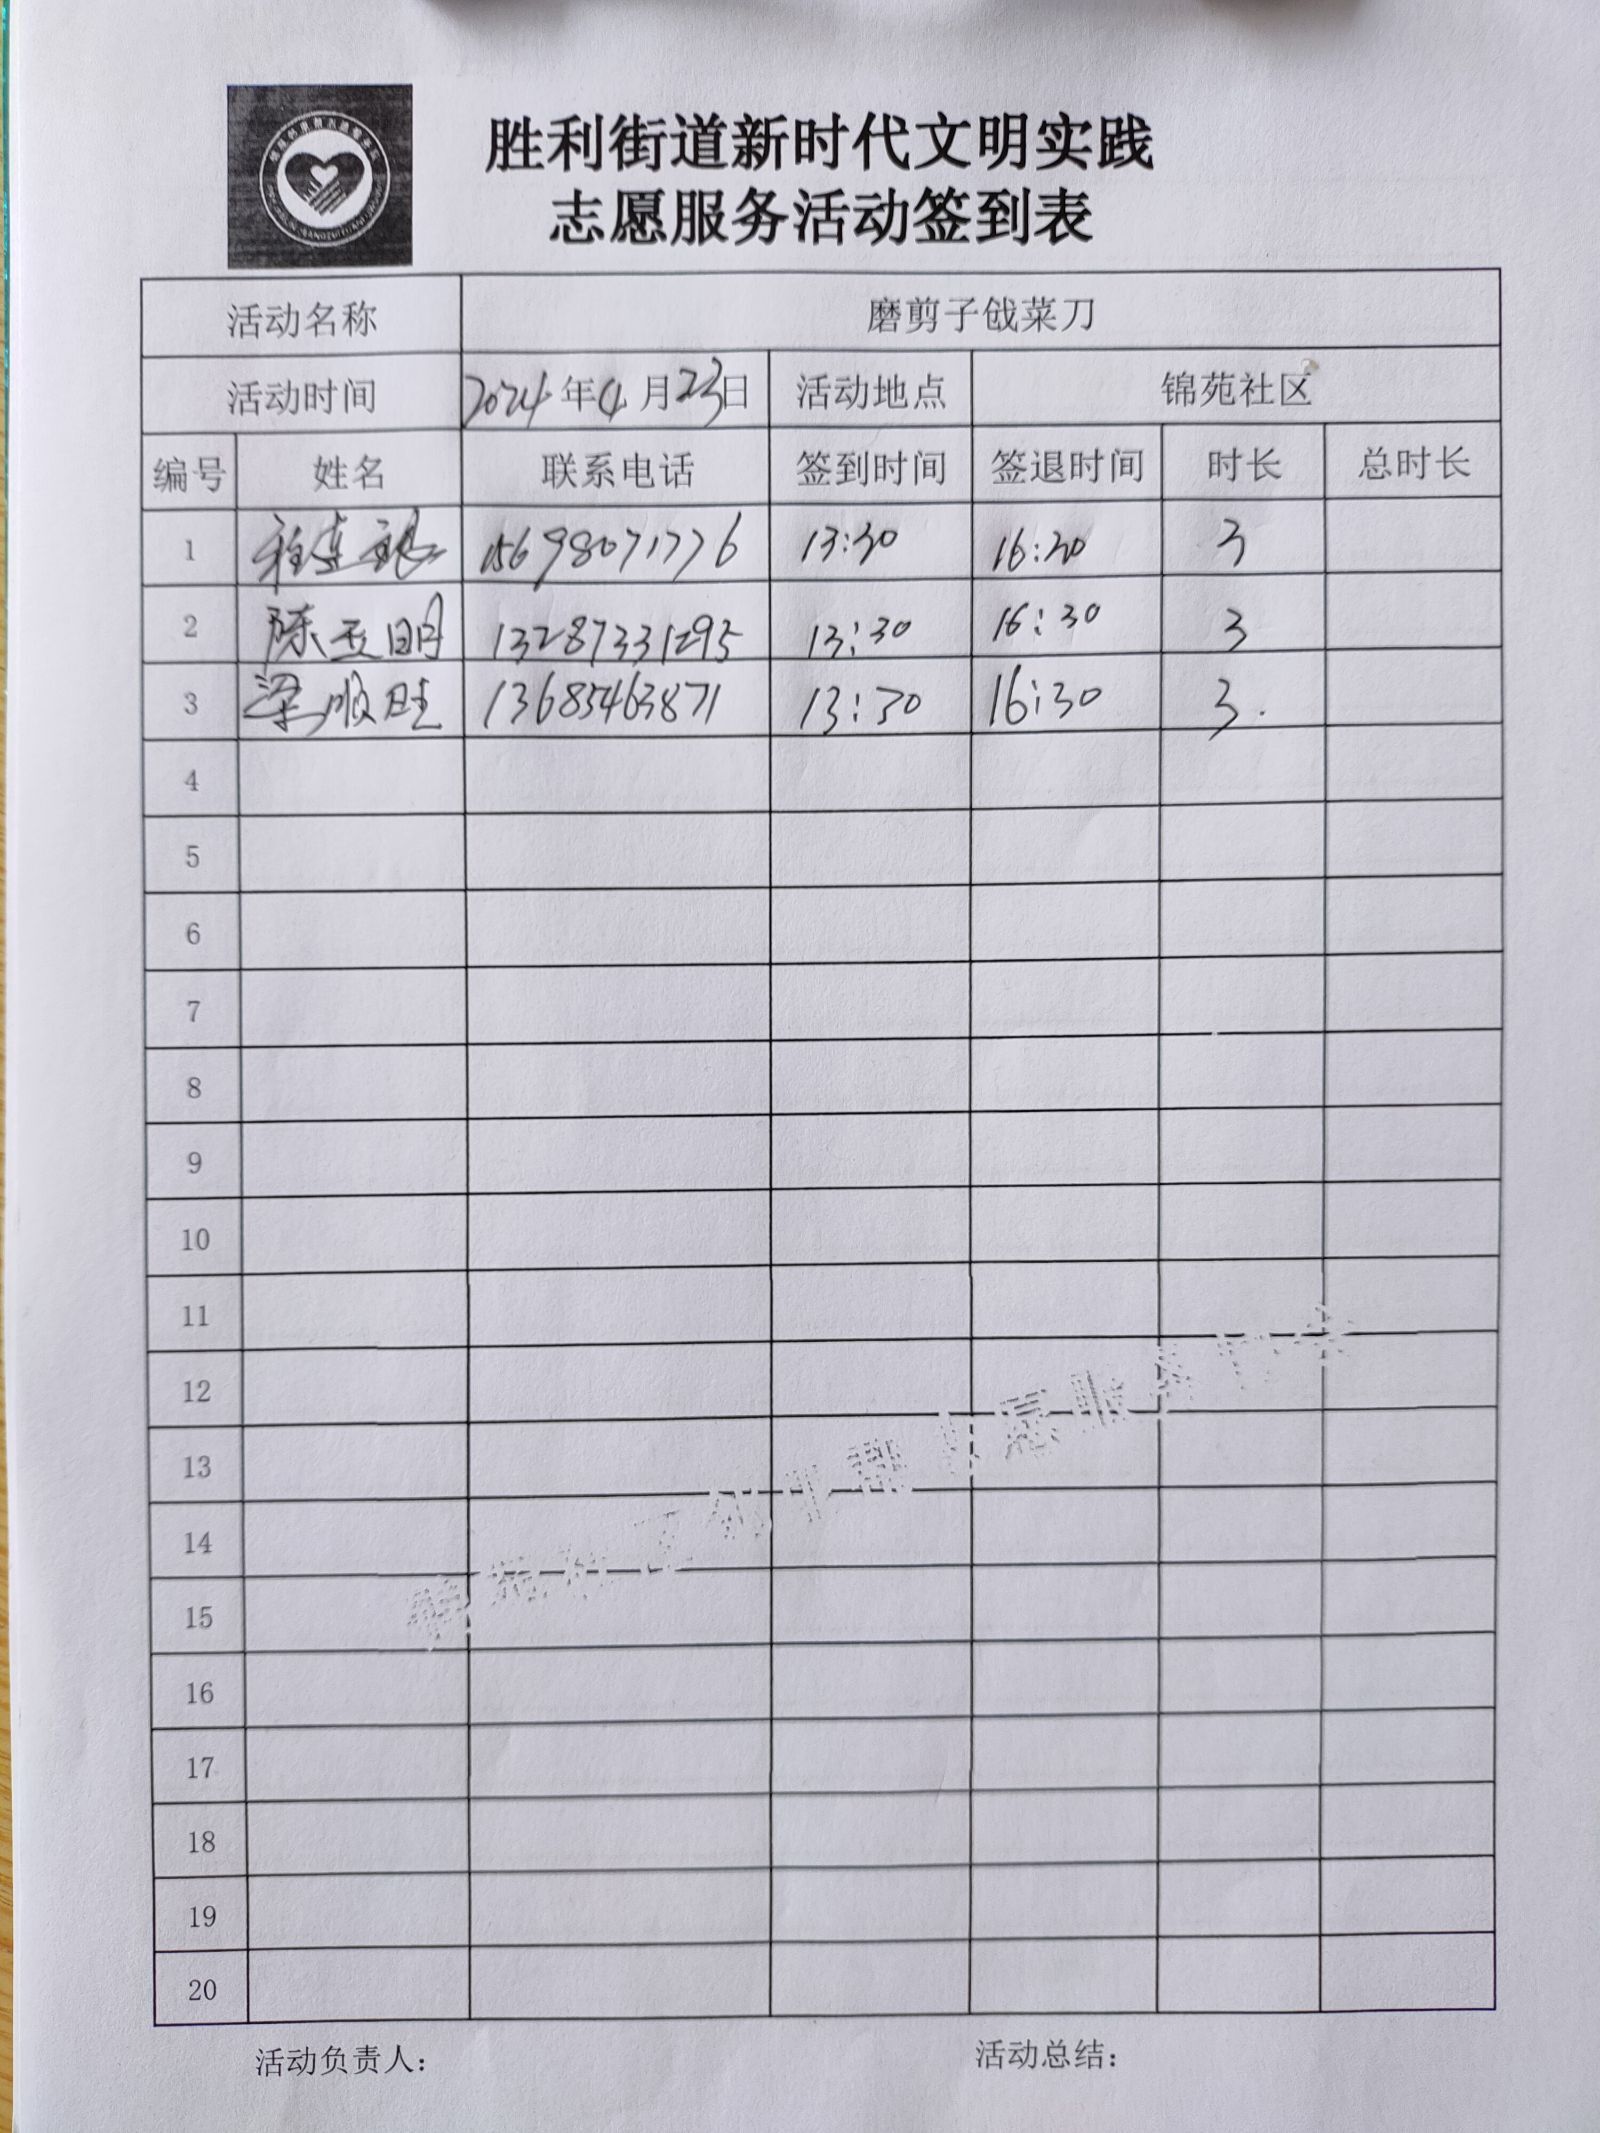 胜利街道新时代文明实践
志愿服务活动签到表
活动名称 磨剪子戗菜刀
活动时间 2024年4月23日 活动地点 锦苑社区
编号 姓名 联系电话 签到时间 签退时间 时长 总时长
1 15698071776 13:30 16:30 3
2 陈玉明 13287331295 13:30 16:30 3
3 梁顺旺 13685463871 13:30 16:30 3.
4
5
6
7
8
9
10
11
12
13
14
15
16
17
18
19
20
活动负责人: 活动总结: